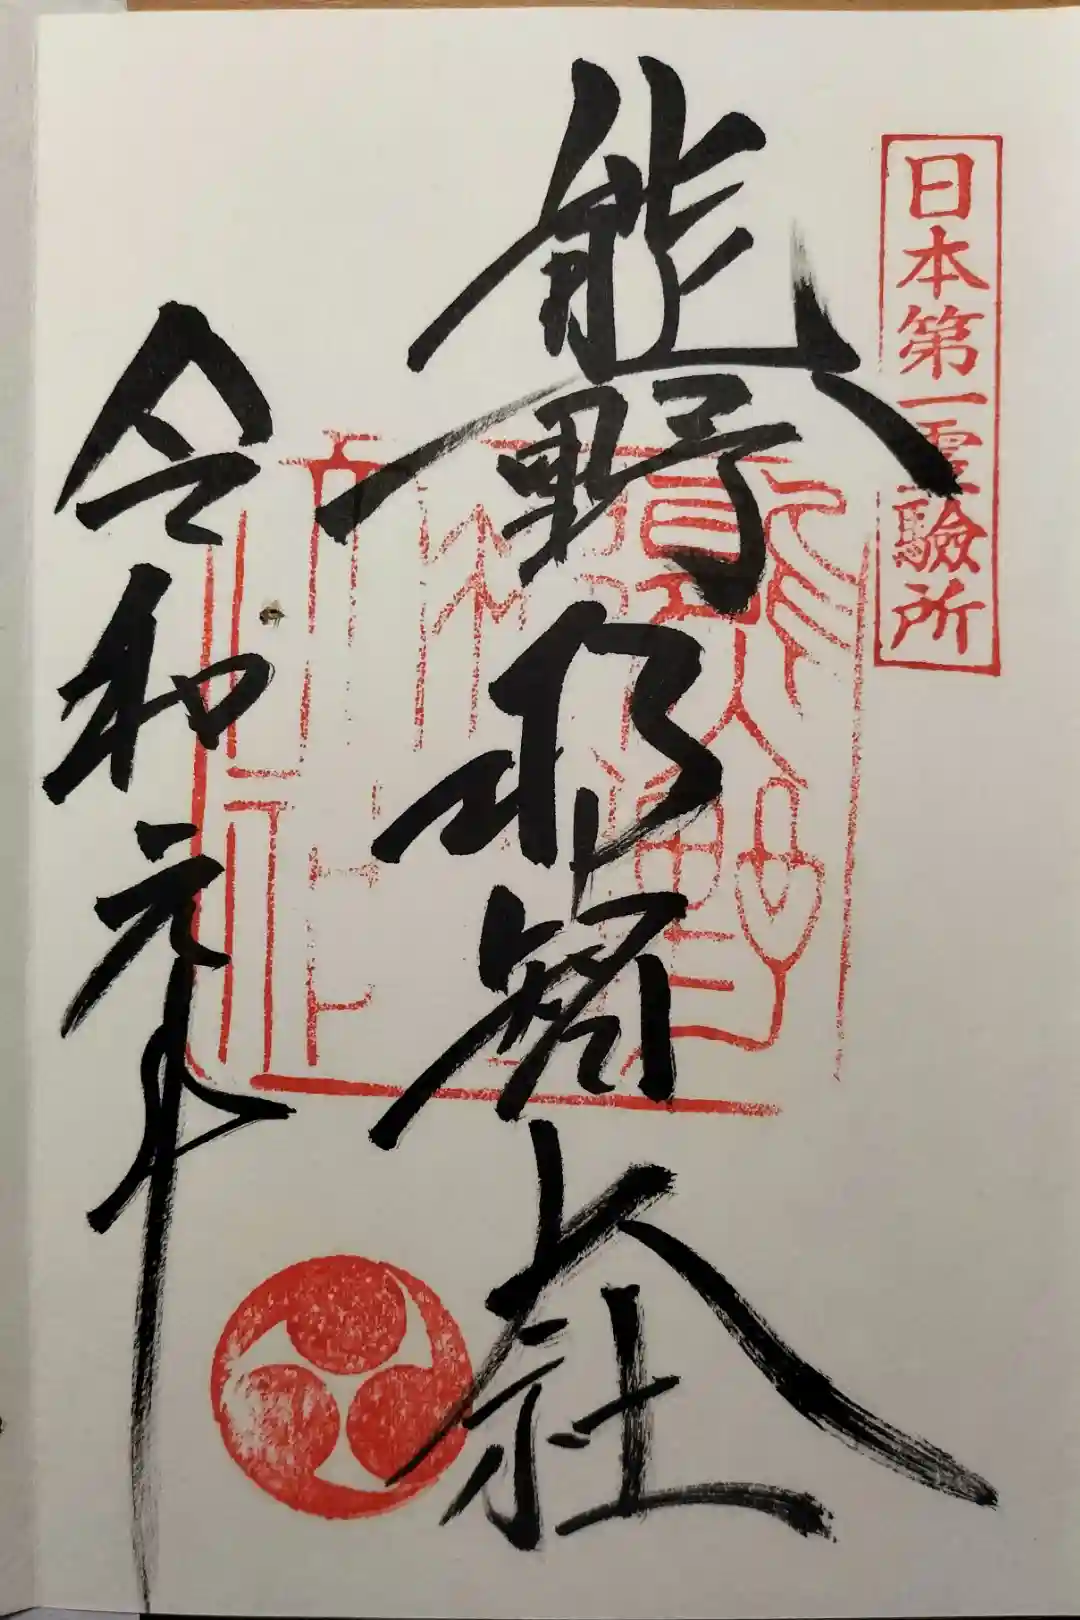 日本第一霊驗所
熊野那智大社
令和元年